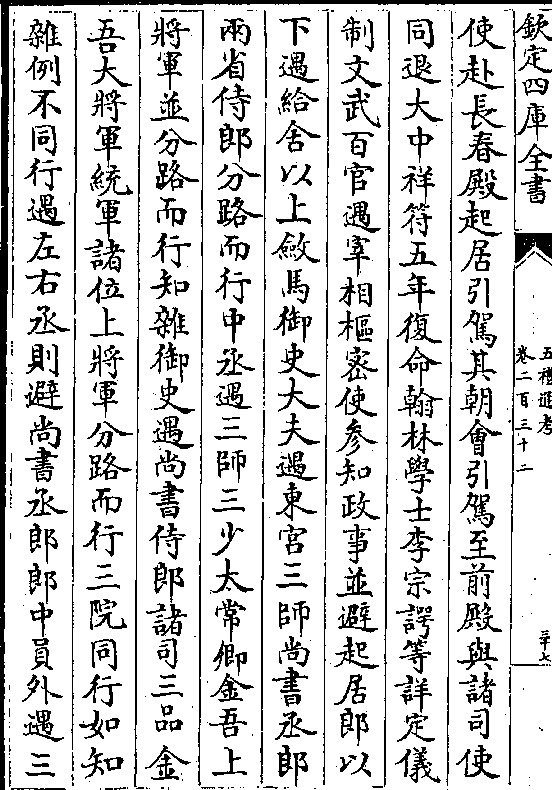 欽定四庫全書
五禮通考
卷二百三十二
三十七
使赴長春殿起居引駕其朝會引駕至前殿與諸司使
同退大中祥符五年復命翰林學士李宗諤等詳定儀
制文武百官遇宰相樞密使參知政事並避起居郎以
下遇給舍以上斂馬御史大夫遇東宮三師尚書丞郎
兩省侍郎分路而行中丞遇三師三少太常卿金吾上
將軍並分路而行知雜御史遇尚書侍郎諸司三品金
吾大將軍統軍諸位上將軍分路而行三院同行如知
雜例不同行遇左右丞則避尚書丞郎郎中員外遇三